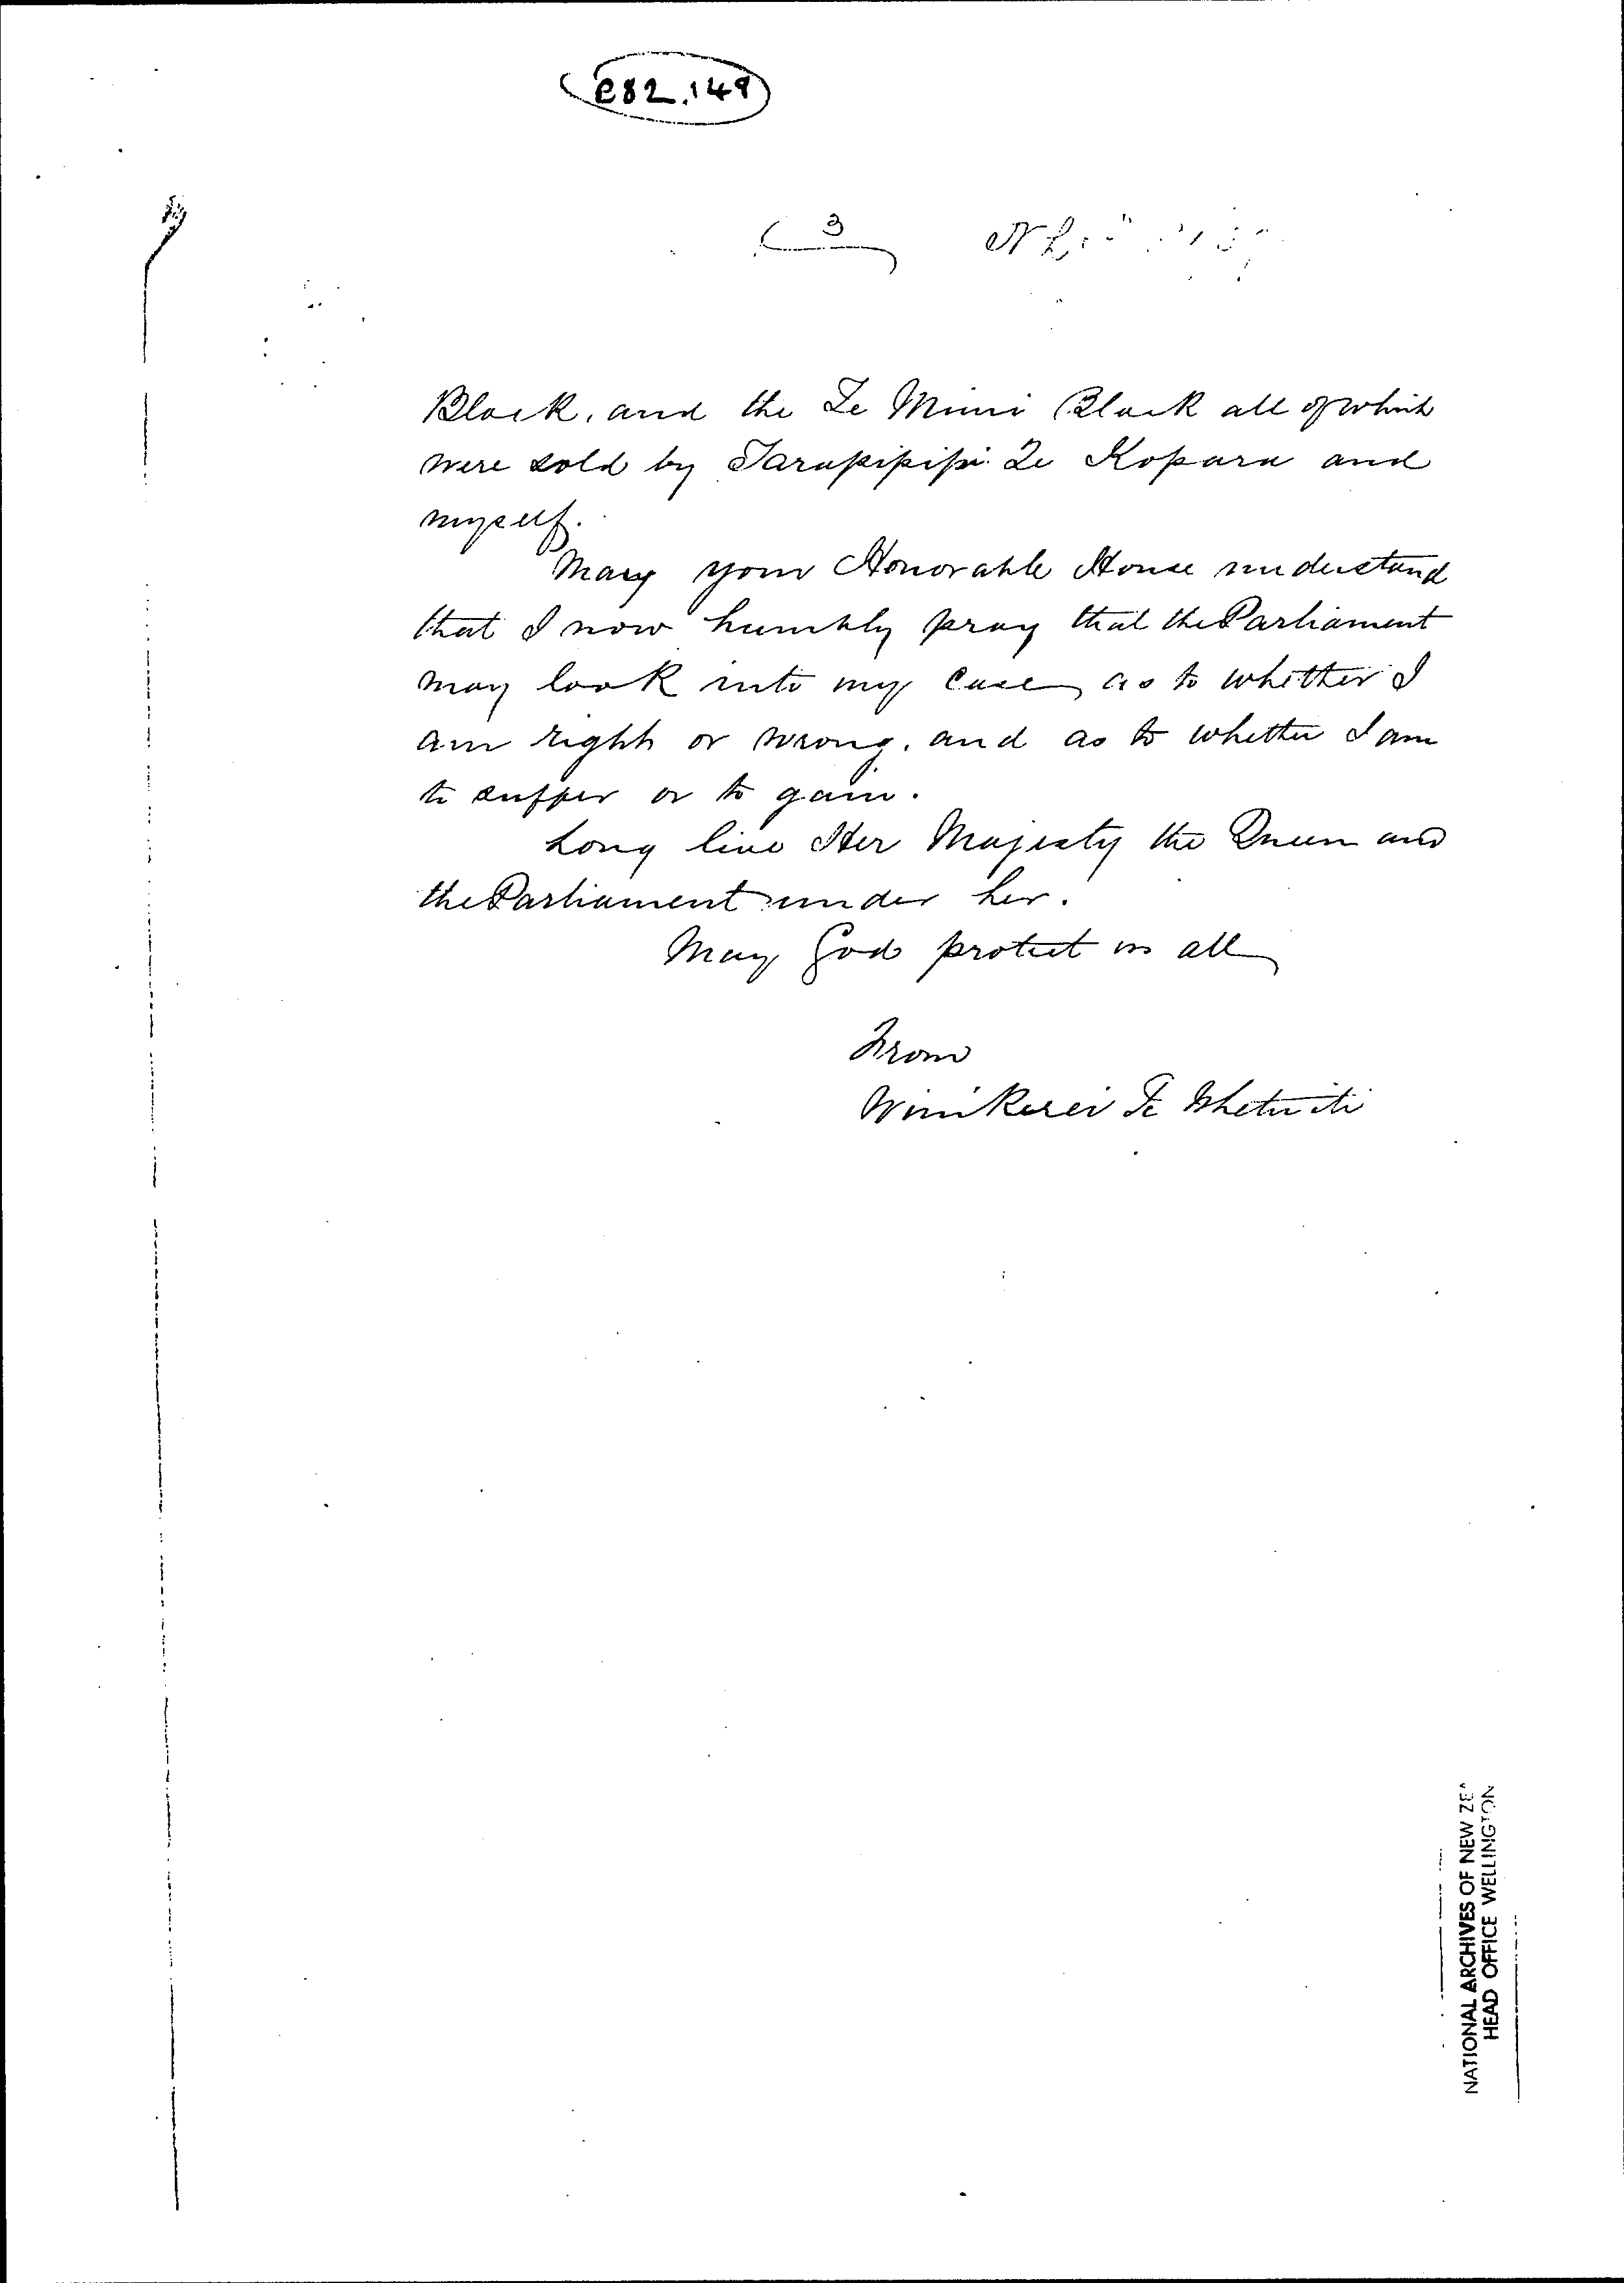 e82.149
3
Block, and the Te Mimi Block all of which
were sold by Tarapipipi Te Kopara and
myself.
May your Honorable House understand
that I now humbly pray that the Parliament
may look into my case as to whether I
am right or wrong, and as to whether I am
to suffer or to gain.
Long live Her Majesty the Queen and
the Parliament under her.
May God protect us all
From
Te Whetuiti
NATIONAL ARCHIVES OF NEW ZEA
HEAD OFFICE WELLINGTON